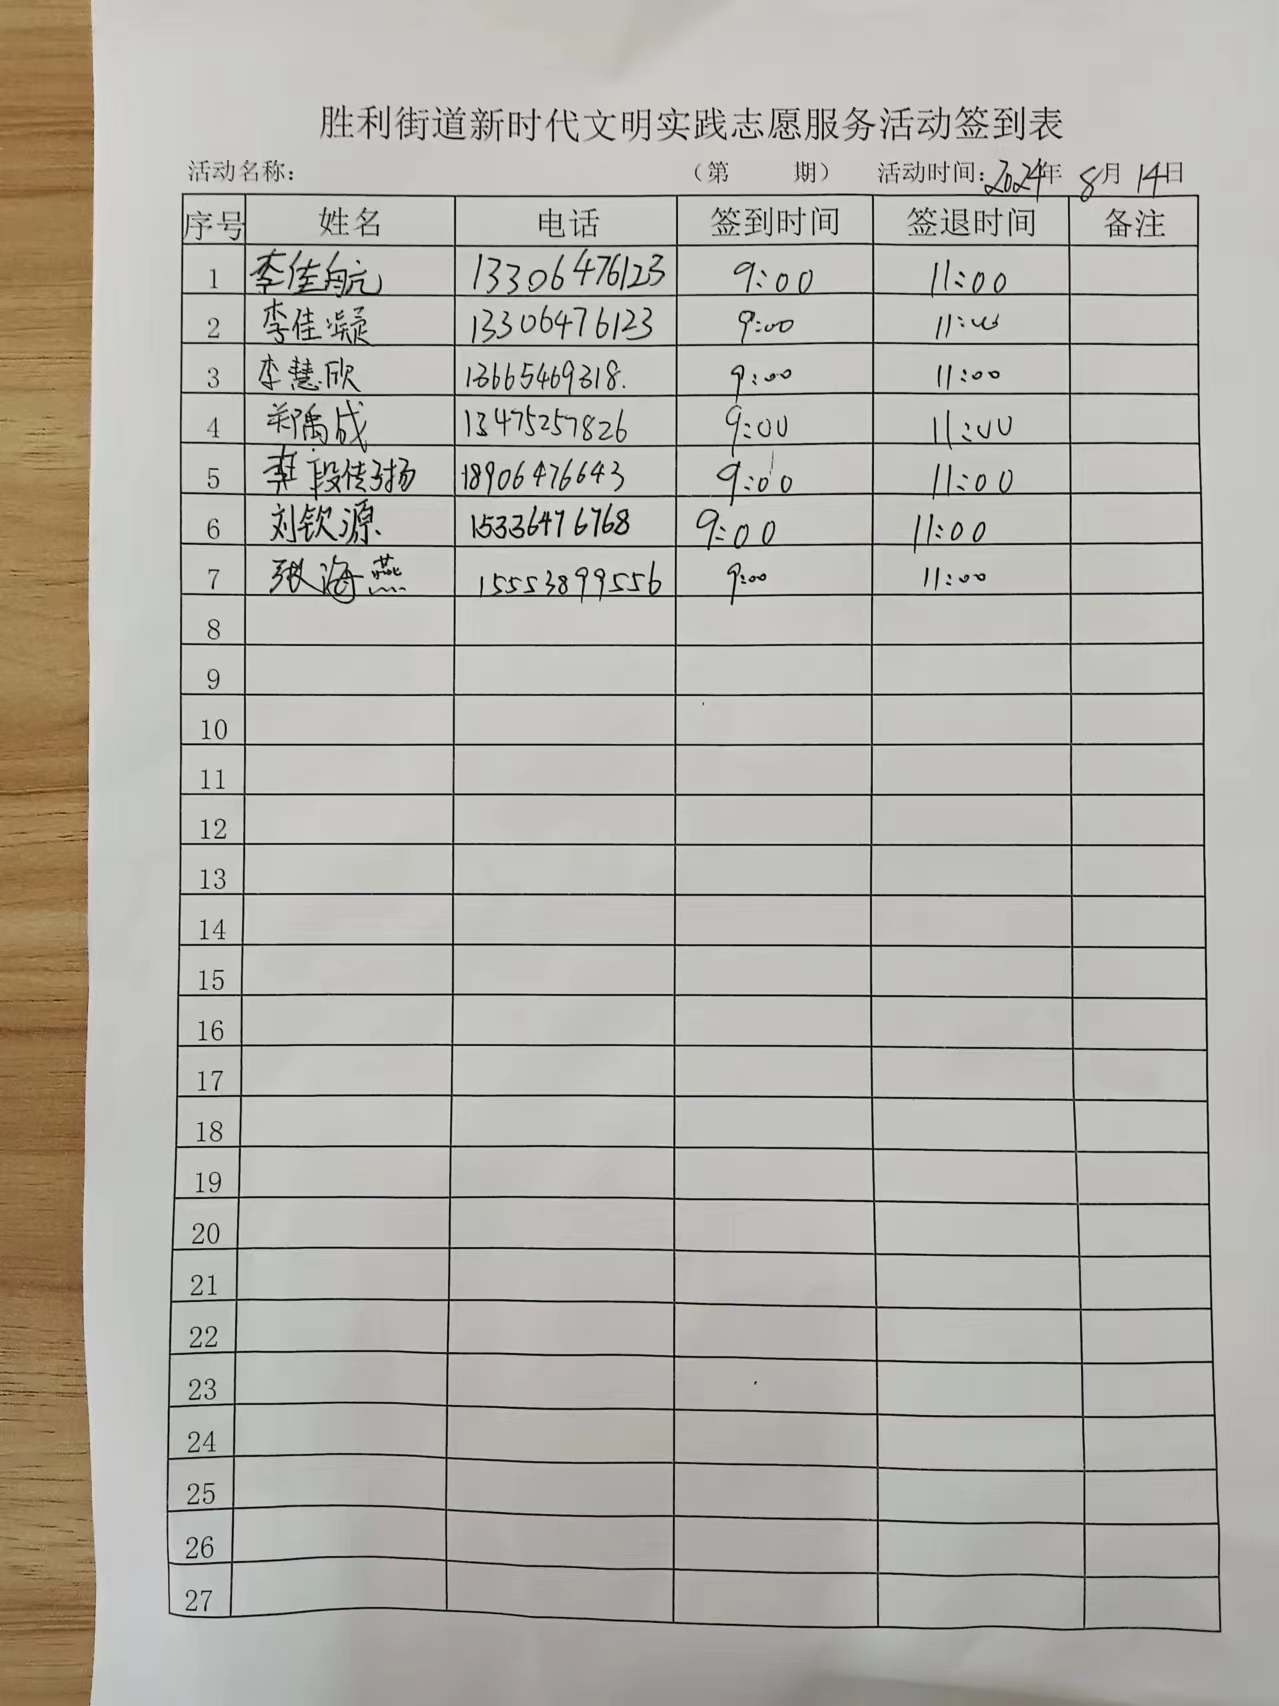 胜利街道新时代文明实践志愿服务活动签到表
活动名称: （第 期） 活动时间: 2024年 8月 14日
序号 姓名 电话 签到时间 签退时间 备注
1 李佳航 13306476123 9:00 11:00
2 李佳凝 13306476123 9:00 11:00
3 李慧欣 13665469318. 9:00 11:00
4 郑禹成 13475257826 9:00 11:00
5 段传扬 18906476643 9:00 11:00
6 刘钦源 15336476768 9:00 11:00
7 张海燕 15553899556 9:00 11:00
8
9
10
11
12
13
14
15
16
17
18
19
20
21
22
23
24
25
26
27